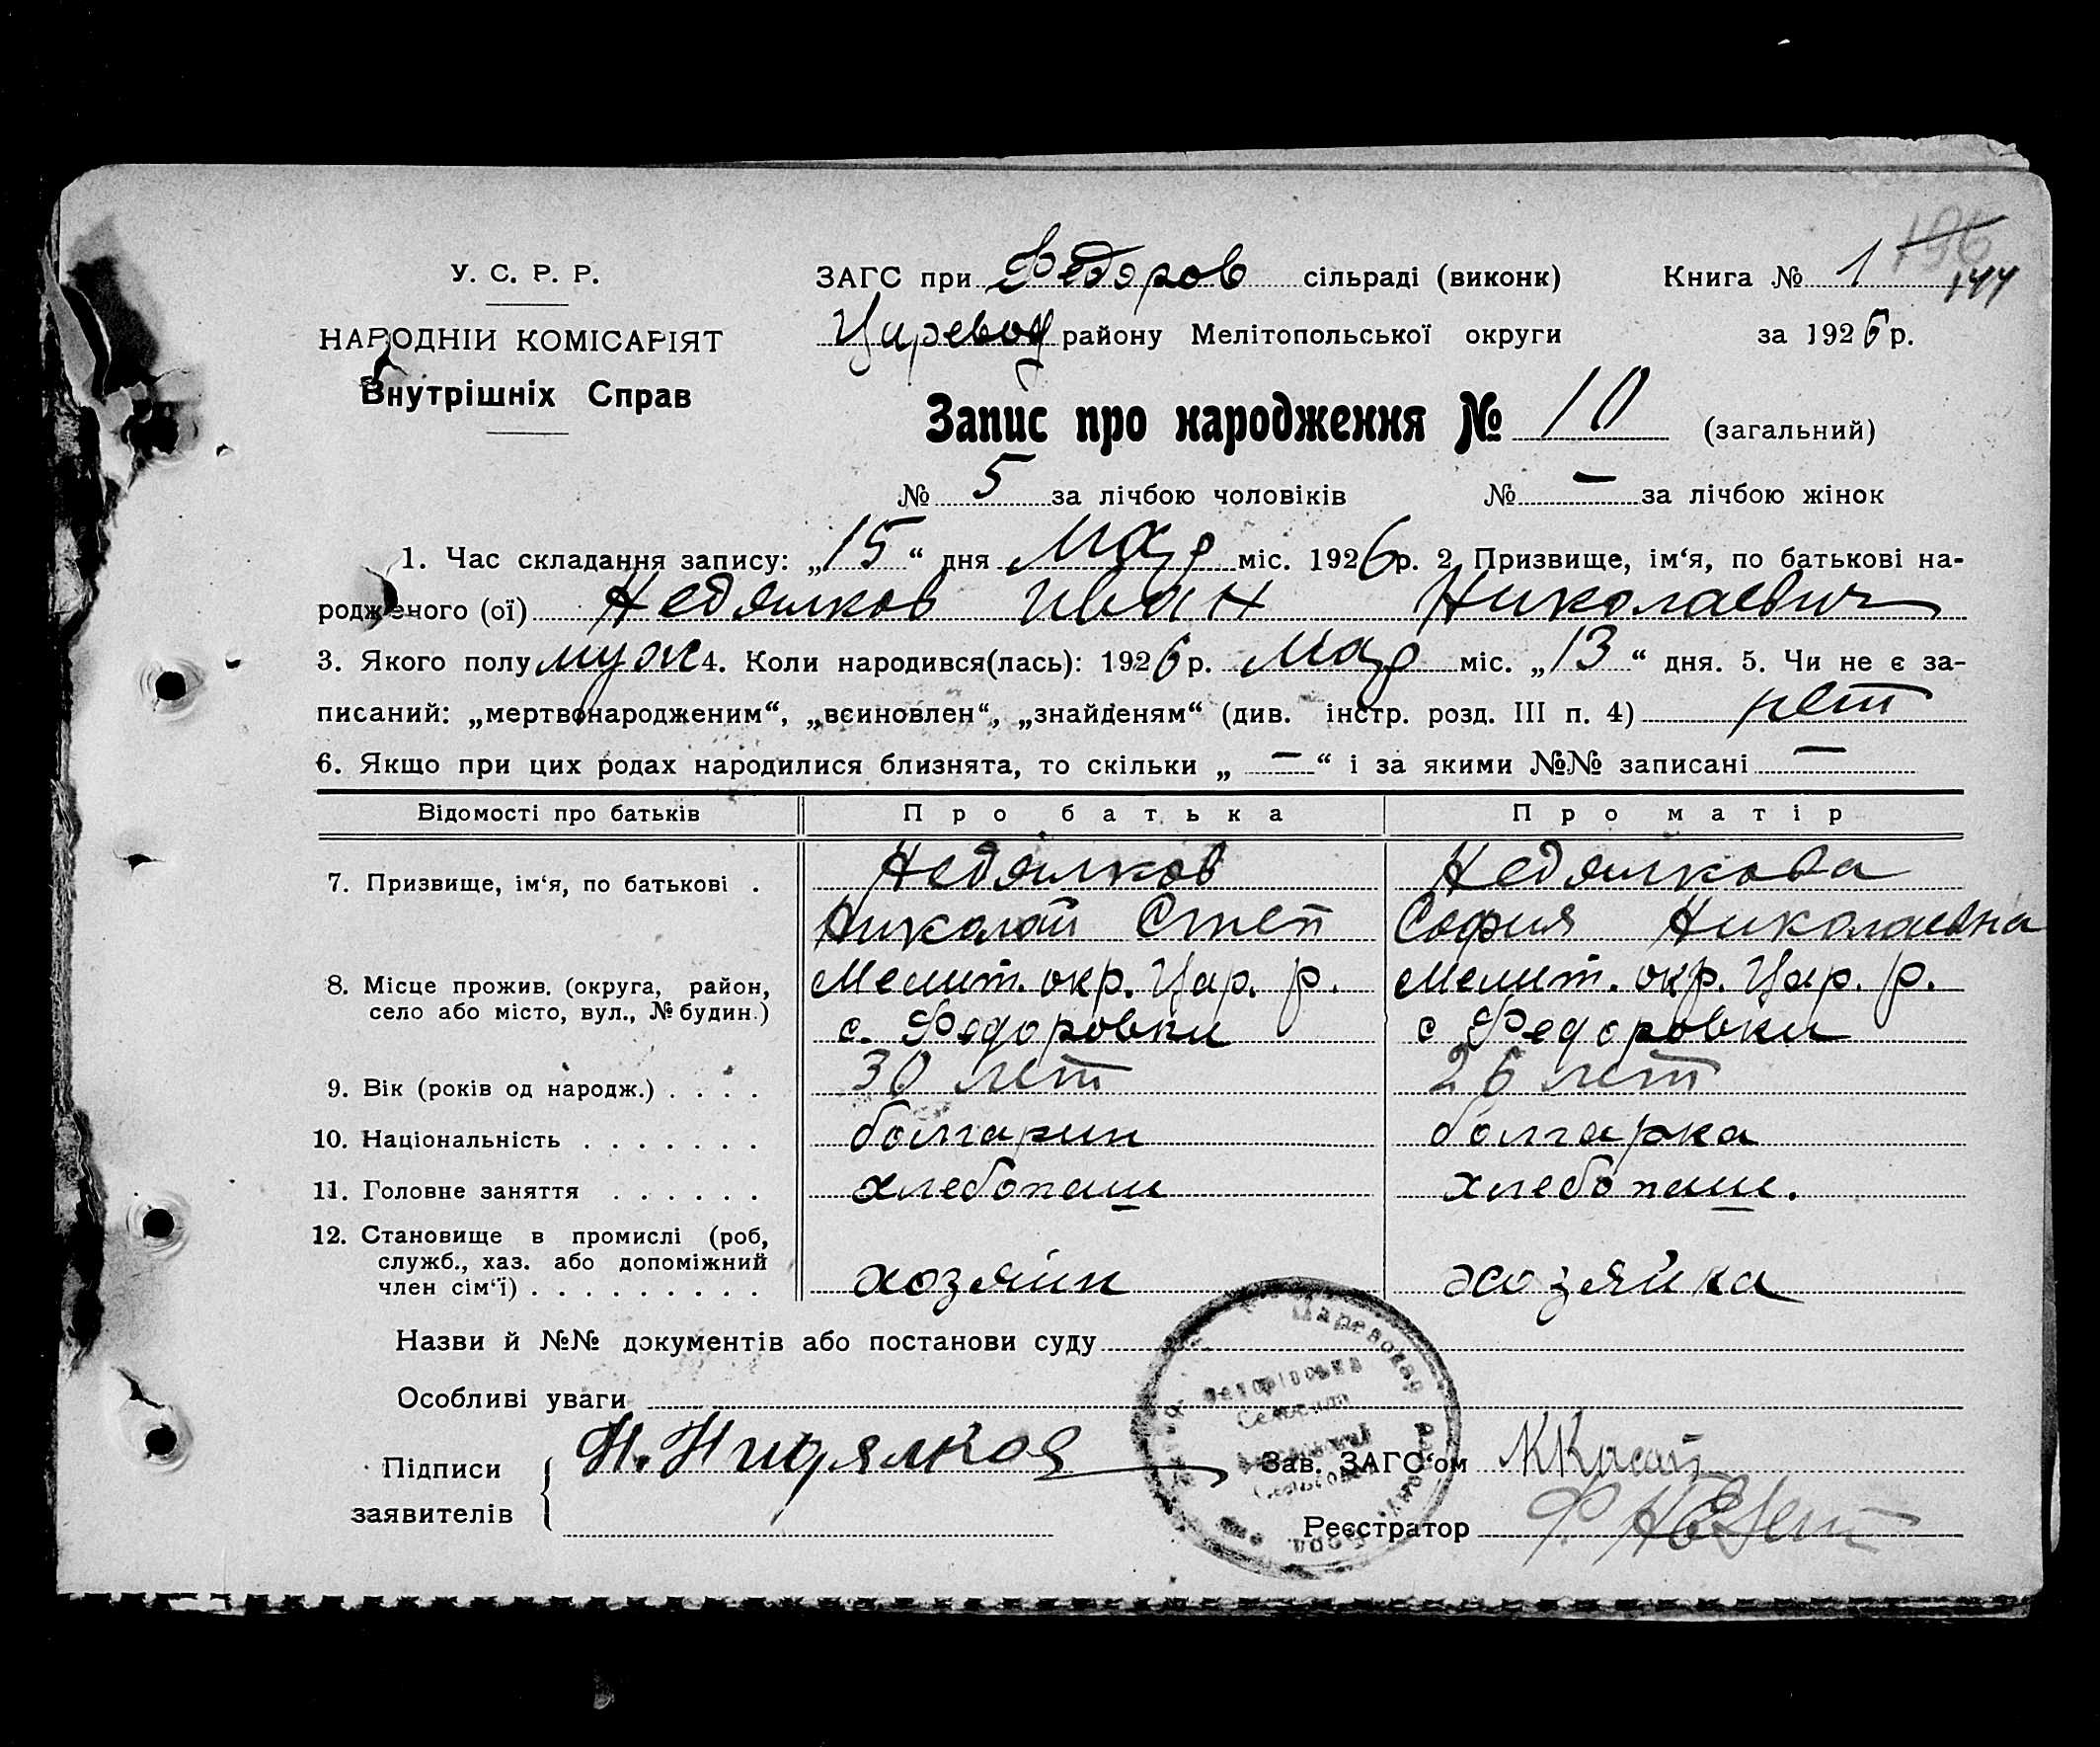 196
У. С. Р. Р.
ЗАГС при Федоров сільраді (виконк)
Книга № 1
144
НАРОДНІЙ КОМІСАРІЯТ
Царевод району Мелітопольської округи
за 1926 р.
Внутрішніх Справ
Запис про народження № 10 (загальний)
№ 5 за лічбою чоловіків № — за лічбою жінок
1. Час складання запису: „15“ дня мая міс. 1926р. 2. Призвище, ім‘я, по батькові на-
родженого (ої) Недялков Иван Николаевич
3. Якого полу муж 4. Коли народився(лась): 1926 р. мая міс. „13“ дня. 5. Чи не є за-
писаний: „мертвонародженим“, „всиновлен“, „знайденям“ (див. інстр. розд. III п. 4) нет
6. Якщо при цих родах народилися близнята, то скільки „—“ і за якими №№ записані —
Відомості про батьків Про батька Про матір
7. Призвище, ім‘я, по батькові . Недялков Недялкова
Николай Степ София Николаевна
8. Місце прожив. (округа, район, Мелит. окр. Цар. р. Мелит. окр. Цар. р.
село або місто, вул., № будин.) с. Федоровки с Федоровки
9. Вік (років од народж.) . . . . 30 лет 26 лет
10. Національність . . . . . . . болгарин болгарка
11. Головне заняття . . . . . . хлебопаш хлебопаш.
12. Становище в промислі (роб,
служб., хаз. або допоміжний
член сім‘ї) . . . . . . . . . хозяин хозяйка
Назви й №№ документів або постанови суду
Особливі уваги
Підписи
заявителів
Н. Нидялков
Зав. ЗАГС‘ом
Реєстратор